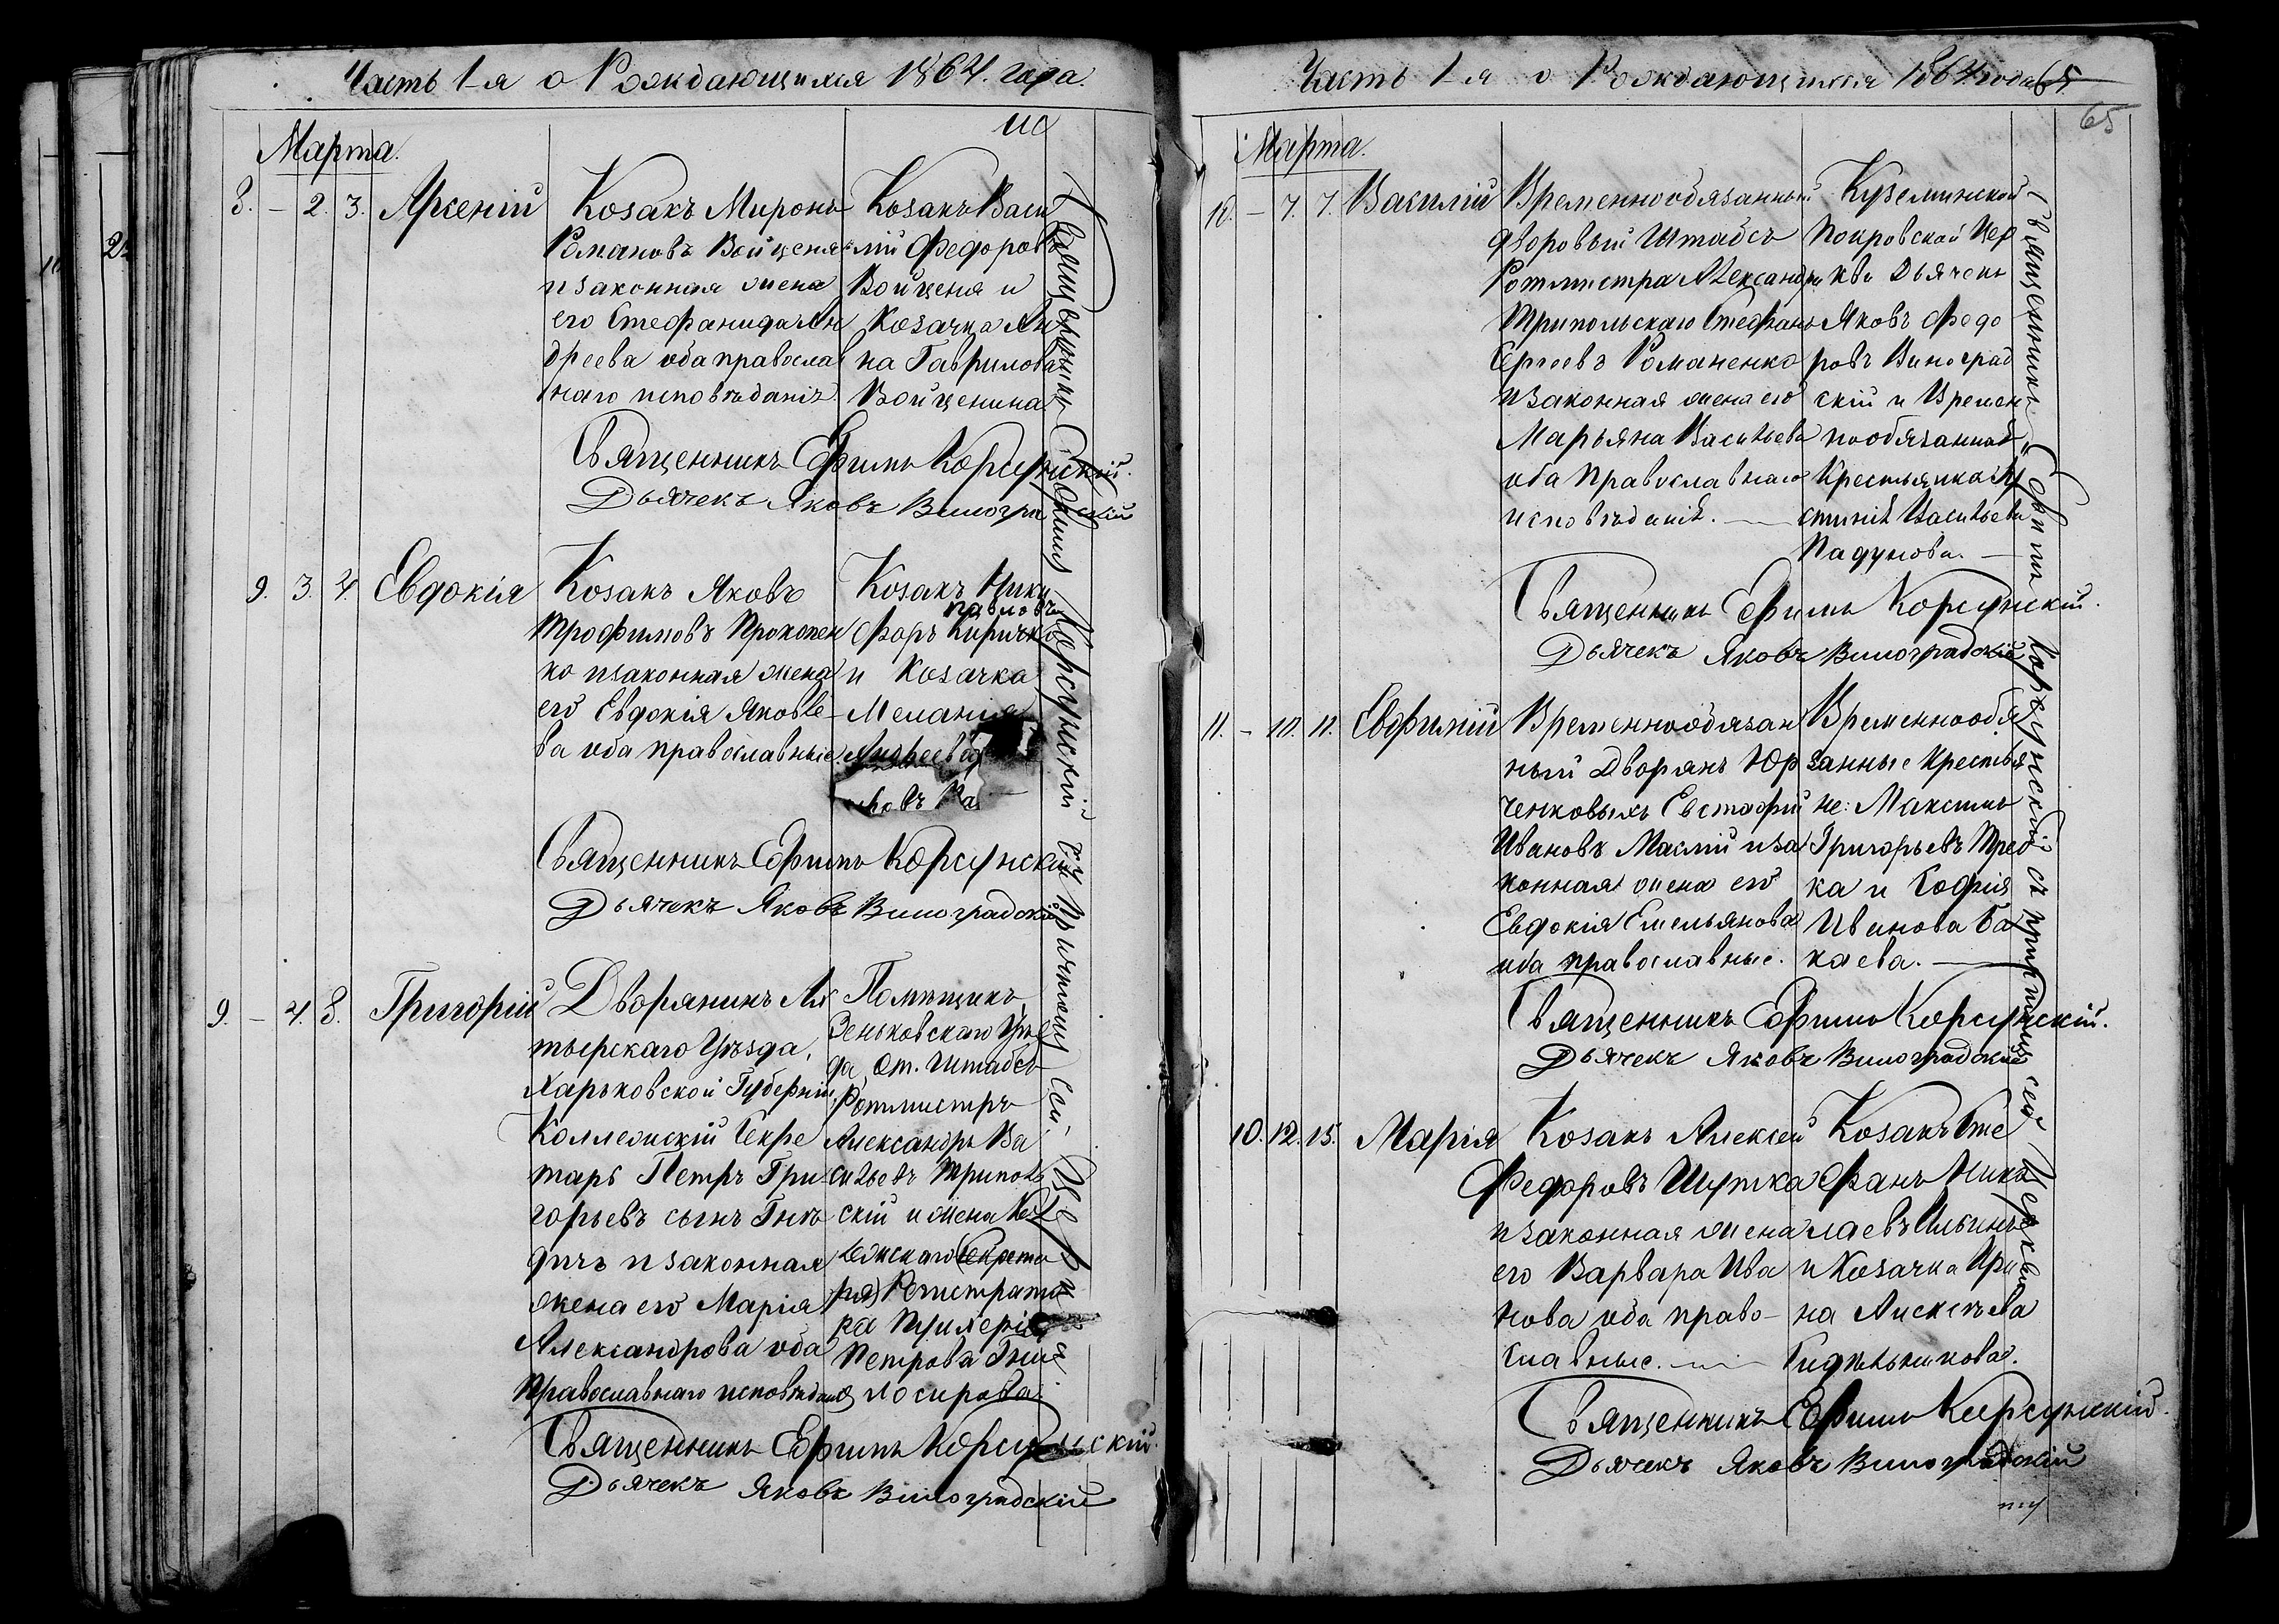 Часть 1-я о Рождающихся 1864. года.
Марта.
8. – 2. 3. Арсеній
Козакъ Миронъ
Романовъ Войценя
и законная жена
его Стефанида Ан
дреева оба православ
наго исповѣданія.
Козакъ Васи
лій Федоровъ
Войценя и
Козачка Ан
на Гаврилова
Войценина
Священникъ Ефимъ Корсунскій.
Дьячекъ Яковъ Виноградскій
9. 3. 4. Евдокія
Козакъ Яковъ
Трофимовъ Прокопен
ко и законная жена
его Евдокія Яковле-
ва оба православные
Козакъ Ники
Павловъ
форъ Киричко
и Козачка
Меланія
Андреева
Священникъ Ефимъ Корсунскій
Дьячекъ Яковъ Виноградскій
9. – 4. 8. Григорій
Дворянинъ Ах
тырскаго Уѣзда,
Харьковской Губерніи,
Коллежскій Секре
тарь Петръ Гри
горьевъ сынъ Гнѣ
дичъ и законная
жена его Марія
Александрова оба
Православнаго исповѣданія
Помѣщикъ
Зеньковскаго Уѣз
да, От. Штабсъ
Ротмистръ
Александръ Ва
сильевъ Триполь
скій и жена Кол
лежскаго (Секрета
ря) Регистрато
ра Пулхерія
Петрова
Священникъ Ефимъ Корсунскій.
Дьячекъ Яковъ Виноградскій
Священникъ Ефимъ Корсунскій съ Причтомъ сей Церкви
Часть 1-я о Рождающихся 1864 года 65
65
Марта.
10. – 7. 7. Василій
Временнообязанный
дворовый Штабсъ
Ротмистра Александра
Трипольскаго Стефанъ
Сергѣевъ Романенко
и законная жена его
Марьяна Васильева
оба Православнаго
исповѣданія. —
Куземинской
Покровской Цер
кви Дьячекъ
Яковъ Федо
ровъ Виноград
скій и Времен
нообязанная
Крестьянка Ху
стинія Васильева
Падунова. —
Священникъ Ефимъ Корсунскій.
Дьячекъ Яковъ Виноградскій
11. – 10. 11. Евфимій
Временнообязан
ный Дворянъ Юр
ченковыхъ Евстафій
Ивановъ Маслій и за
конная жена его
Евдокія Емельянова
оба православные.
Временнообя
занные Крестья
не: Максимъ
Григорьевъ Пред
ка и Софія
Иванова Ба
каева. —
Священникъ Ефимъ Корсунскій.
Дьячекъ Яковъ Виноградскій
10. 12. 15. Марія
Козакъ Алексѣй
Федоровъ Шутка
и законная жена
его Варвара Ива
нова оба право-
славные. —
Козакъ Сте
фанъ Нико
лаевъ Ильинъ
и Козачка Ири
на Алексѣева
Сидѣльникова.
Священникъ Ефимъ Корсунскій.
Дьячекъ Яковъ Виноградскій
Священникъ Ефимъ Корсунскій съ причтомъ сей Церкви